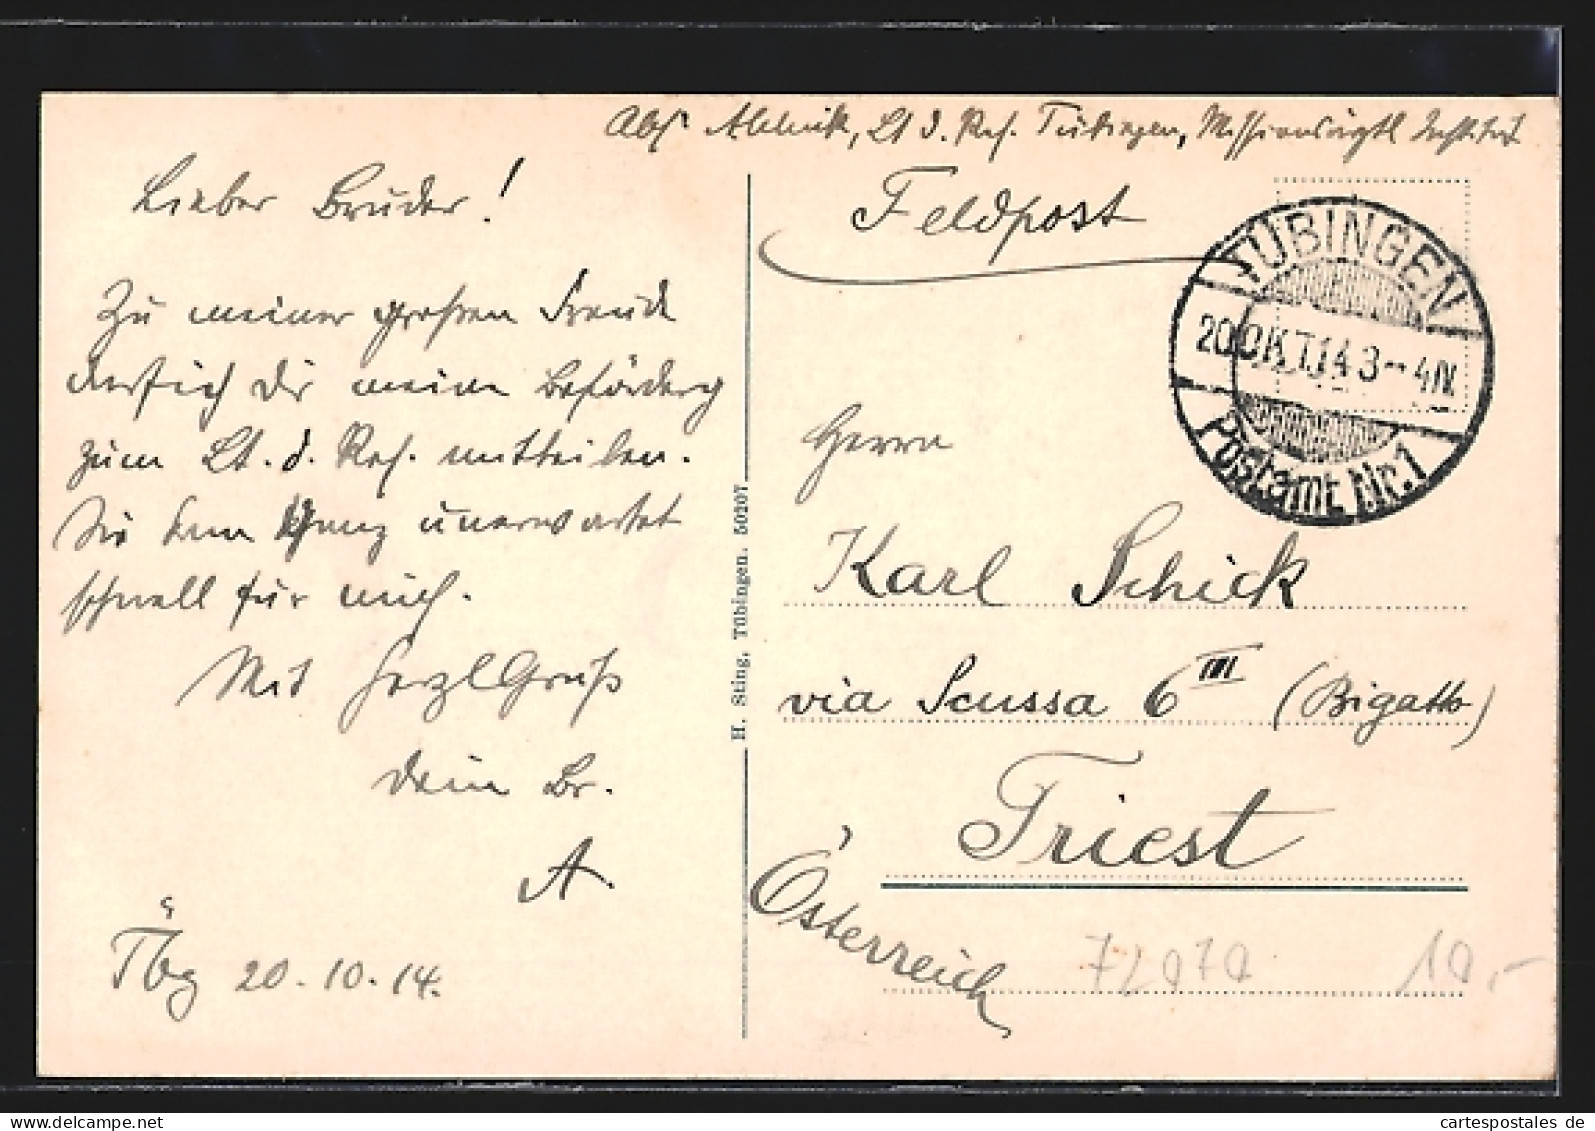 Lt d. Res. Tübingen,
Feldpost
TÜBINGEN
20.OKT.14 3-4N.
Postamt Nr.1
Lieber Bruder!
Zu meiner großen Freude
darf ich Dir meine Beförderg
zum Lt. d. Res. mitteilen.
Sie kam ganz unerwartet
schnell für mich.
Mit herzl Gruß
dein Br.
A.
Tbg 20.10.14.
H. Sting, Tübingen. 50207
Herrn
Karl Schick
via Scussa 6 III (Bigatto)
Triest
Österreich
72070 10,-
cartespostales de